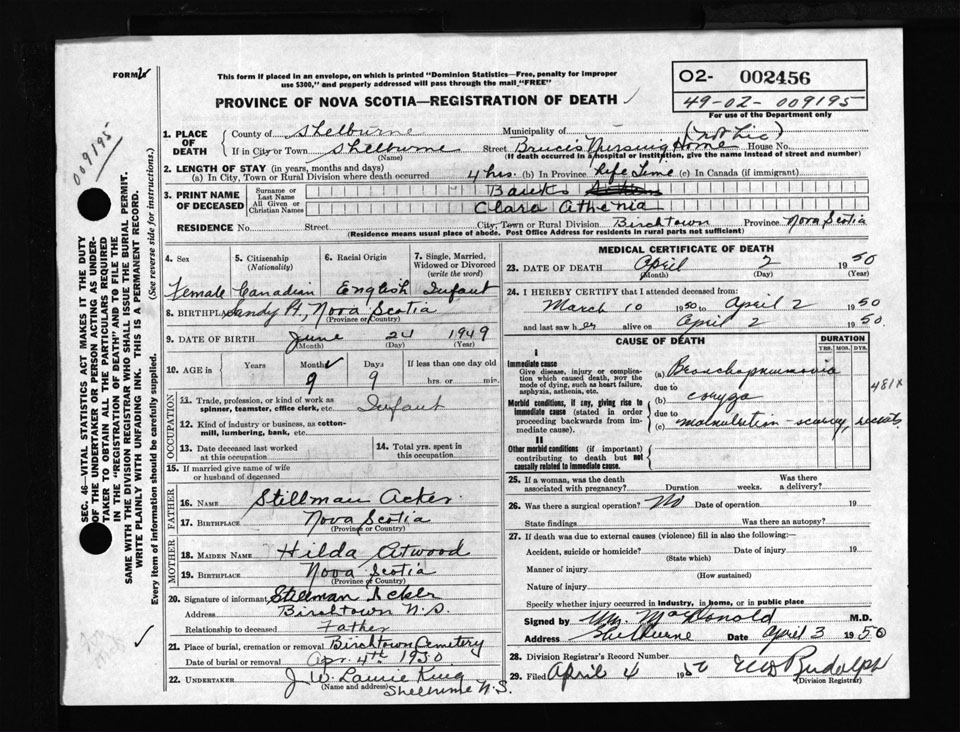 FORM
This form if placed in an envelope, on which is printed "Dominion Statistics—Free, penalty for improper
use $300," and properly addressed will pass through the mail "FREE"
PROVINCE OF NOVA SCOTIA—REGISTRATION OF DEATH
O2- 002456
49-02-009195
For use of the Department only
009195
SEC. 46—VITAL STATISTICS ACT MAKES IT THE DUTY
OF THE UNDERTAKER OR PERSON ACTING AS UNDER-
TAKER TO OBTAIN ALL THE PARTICULARS REQUIRED
IN THE "REGISTRATION OF DEATH" AND TO FILE THE
SAME WITH THE DIVISION REGISTRAR WHO SHALL ISSUE THE BURIAL PERMIT.
WRITE PLAINLY WITH UNFADING INK. THIS IS A PERMANENT RECORD.
Every item of information should be carefully supplied. (See reverse side for instructions.)
1. PLACE OF DEATH
County of Shelburne Municipality of (not Inc)
If in City or Town Shelburne Street Bruce's Nursing Home House No.
(Name) (If death occurred in a hospital or institution, give the name instead of street and number)
2. LENGTH OF STAY (in years, months and days)
(a) In City, Town or Rural Division where death occurred 4 hrs. (b) In Province Life Time (c) In Canada (if immigrant)
3. PRINT NAME OF DECEASED
Surname or Last Name
All Given or Christian Names Clara Athenia
RESIDENCE No. Street City, Town or Rural Division Birchtown Province Nova Scotia
(Residence means usual place of abode. Post Office Address for residents in rural parts not sufficient)
4. Sex 5. Citizenship (Nationality) 6. Racial Origin 7. Single, Married, Widowed or Divorced (write the word)
Female Canadian English Infant
8. BIRTHPLACE Sandy Pt., Nova Scotia
(Province or Country)
9. DATE OF BIRTH June 24 1949
(Month) (Day) (Year)
10. AGE in Years Months Days If less than one day old
9 9 hrs. or min.
OCCUPATION
11. Trade, profession, or kind of work as
spinner, teamster, office clerk, etc. Infant
12. Kind of industry or business, as cotton-
mill, lumbering, bank, etc.
13. Date deceased last worked at this occupation
14. Total yrs. spent in this occupation
15. If married give name of wife
or husband of deceased
FATHER
16. NAME Stillman Acker
17. BIRTHPLACE Nova Scotia
(Province or Country)
MOTHER
18. MAIDEN NAME Hilda Atwood
19. BIRTHPLACE Nova Scotia
(Province or Country)
20. Signature of informant Stillman Acker
Address Birchtown N.S.
Relationship to deceased Father
21. Place of burial, cremation or removal Birchtown Cemetery
Date of burial or removal Apr. 4th 1950
22. UNDERTAKER J. W. Laurie King
(Name and address) Shelburne N.S.
MEDICAL CERTIFICATE OF DEATH
23. DATE OF DEATH April 2 1950
(Month) (Day) (Year)
24. I HEREBY CERTIFY that I attended deceased from:
March 10 1950 to April 2 1950
and last saw her alive on April 2 1950.
CAUSE OF DEATH
DURATION
YRS. MOS. DYS.
I
Immediate cause
Give disease, injury or complica-
tion which caused death, not the
mode of dying, such as heart failure,
asphyxia, asthenia, etc.
(a) Bronchopneumonia
due to
Morbid conditions, if any, giving rise to
immediate cause (stated in order
proceeding backwards from im-
mediate cause).
(b) coryza
due to
(c) malnutrition - scurvy, rickets
II
Other morbid conditions (if important)
contributing to death but not
causally related to immediate cause.
25. If a woman, was the death
associated with pregnancy? Duration weeks. Was there a delivery?
26. Was there a surgical operation? No Date of operation 19
State findings Was there an autopsy?
27. If death was due to external causes (violence) fill in also the following:—
Accident, suicide or homicide? Date of injury 19
(State which)
Manner of injury
(How sustained)
Nature of injury
Specify whether injury occurred in industry, in home, or in public place
Signed by Wm. MacDonald M.D.
Address Shelburne Date April 3 1950
28. Division Registrar's Record Number
29. Filed April 4 1950 Rudolph
(Division Registrar)